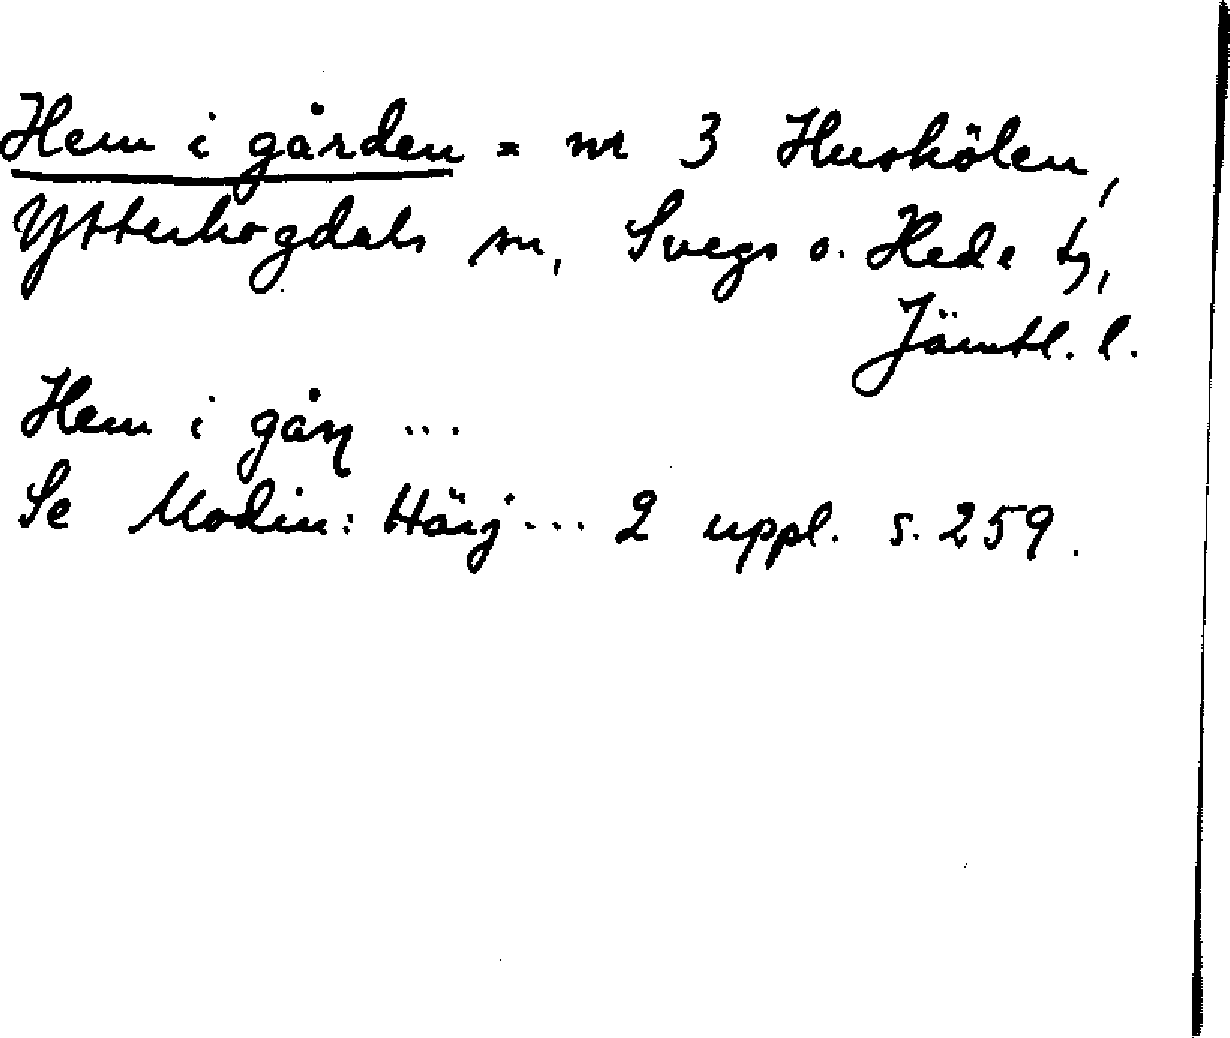 Hem i gården = nr 3 Huskölen,
Ytterhogdals sn, Svegs o. Hede tg,
Jämtl. l.
Hem i gåɳ ...
Se Modin: Härj... 2 uppl. s. 259.